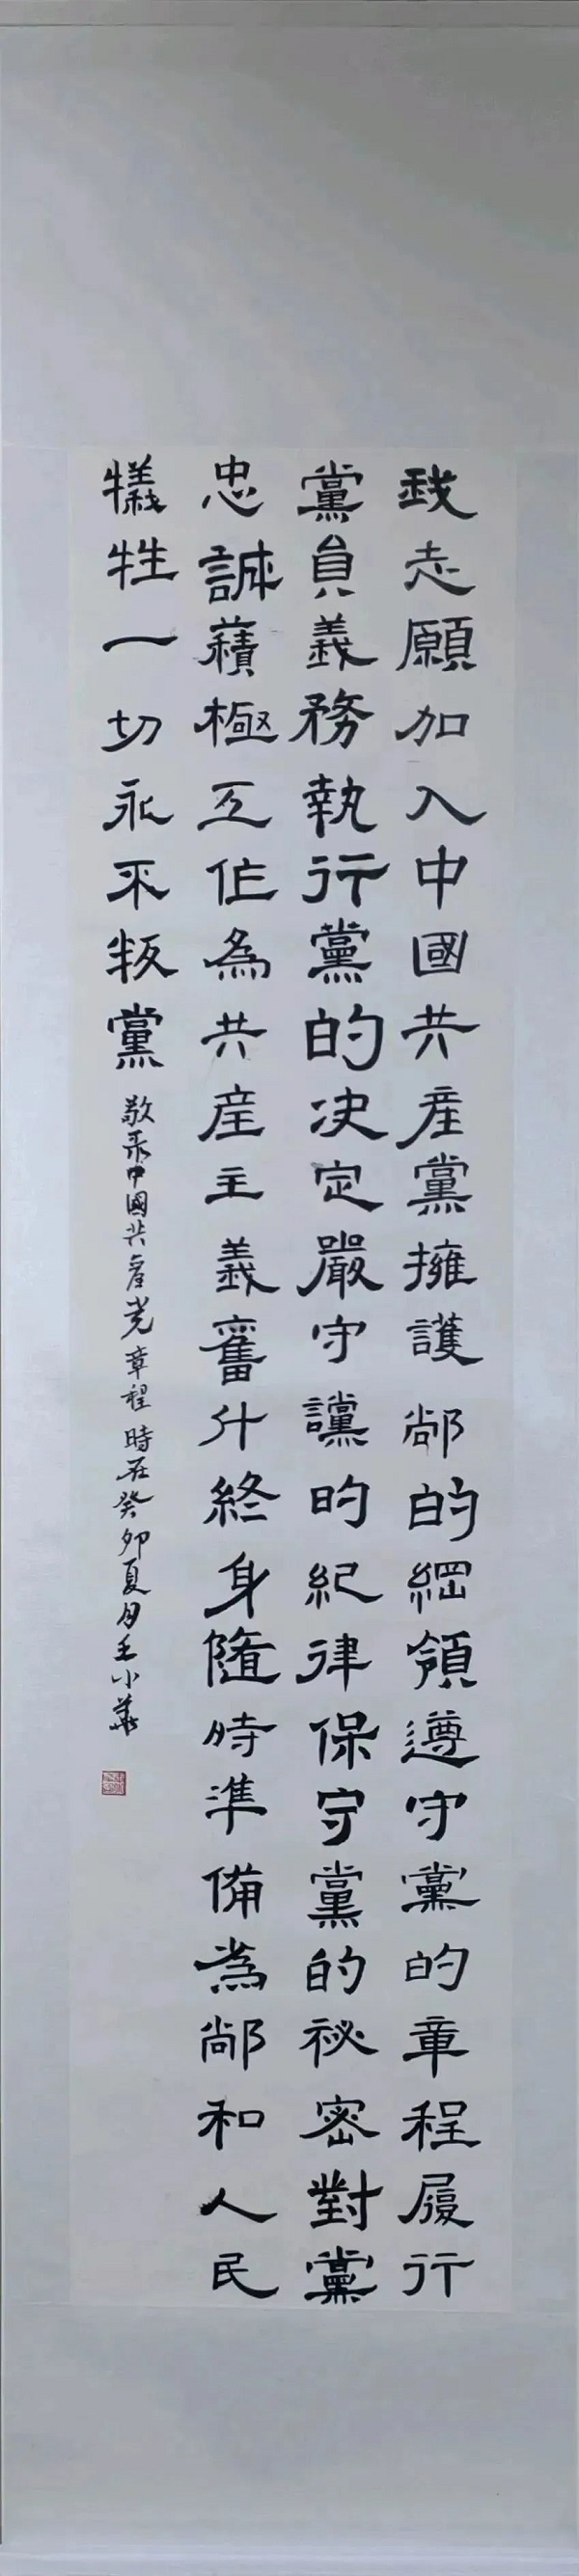 我志願加入中國共産黨擁護䣊的綱領遵守黨的章程履行
黨員義務執行黨的决定嚴守讜的紀律保守黨的祕密對黨
忠誠積極工作為共産主義奮斗終身隨時準備為䣊和人民
犧牲一切永不叛黨
敬录中國共産党章程 時在癸卯夏月王小華